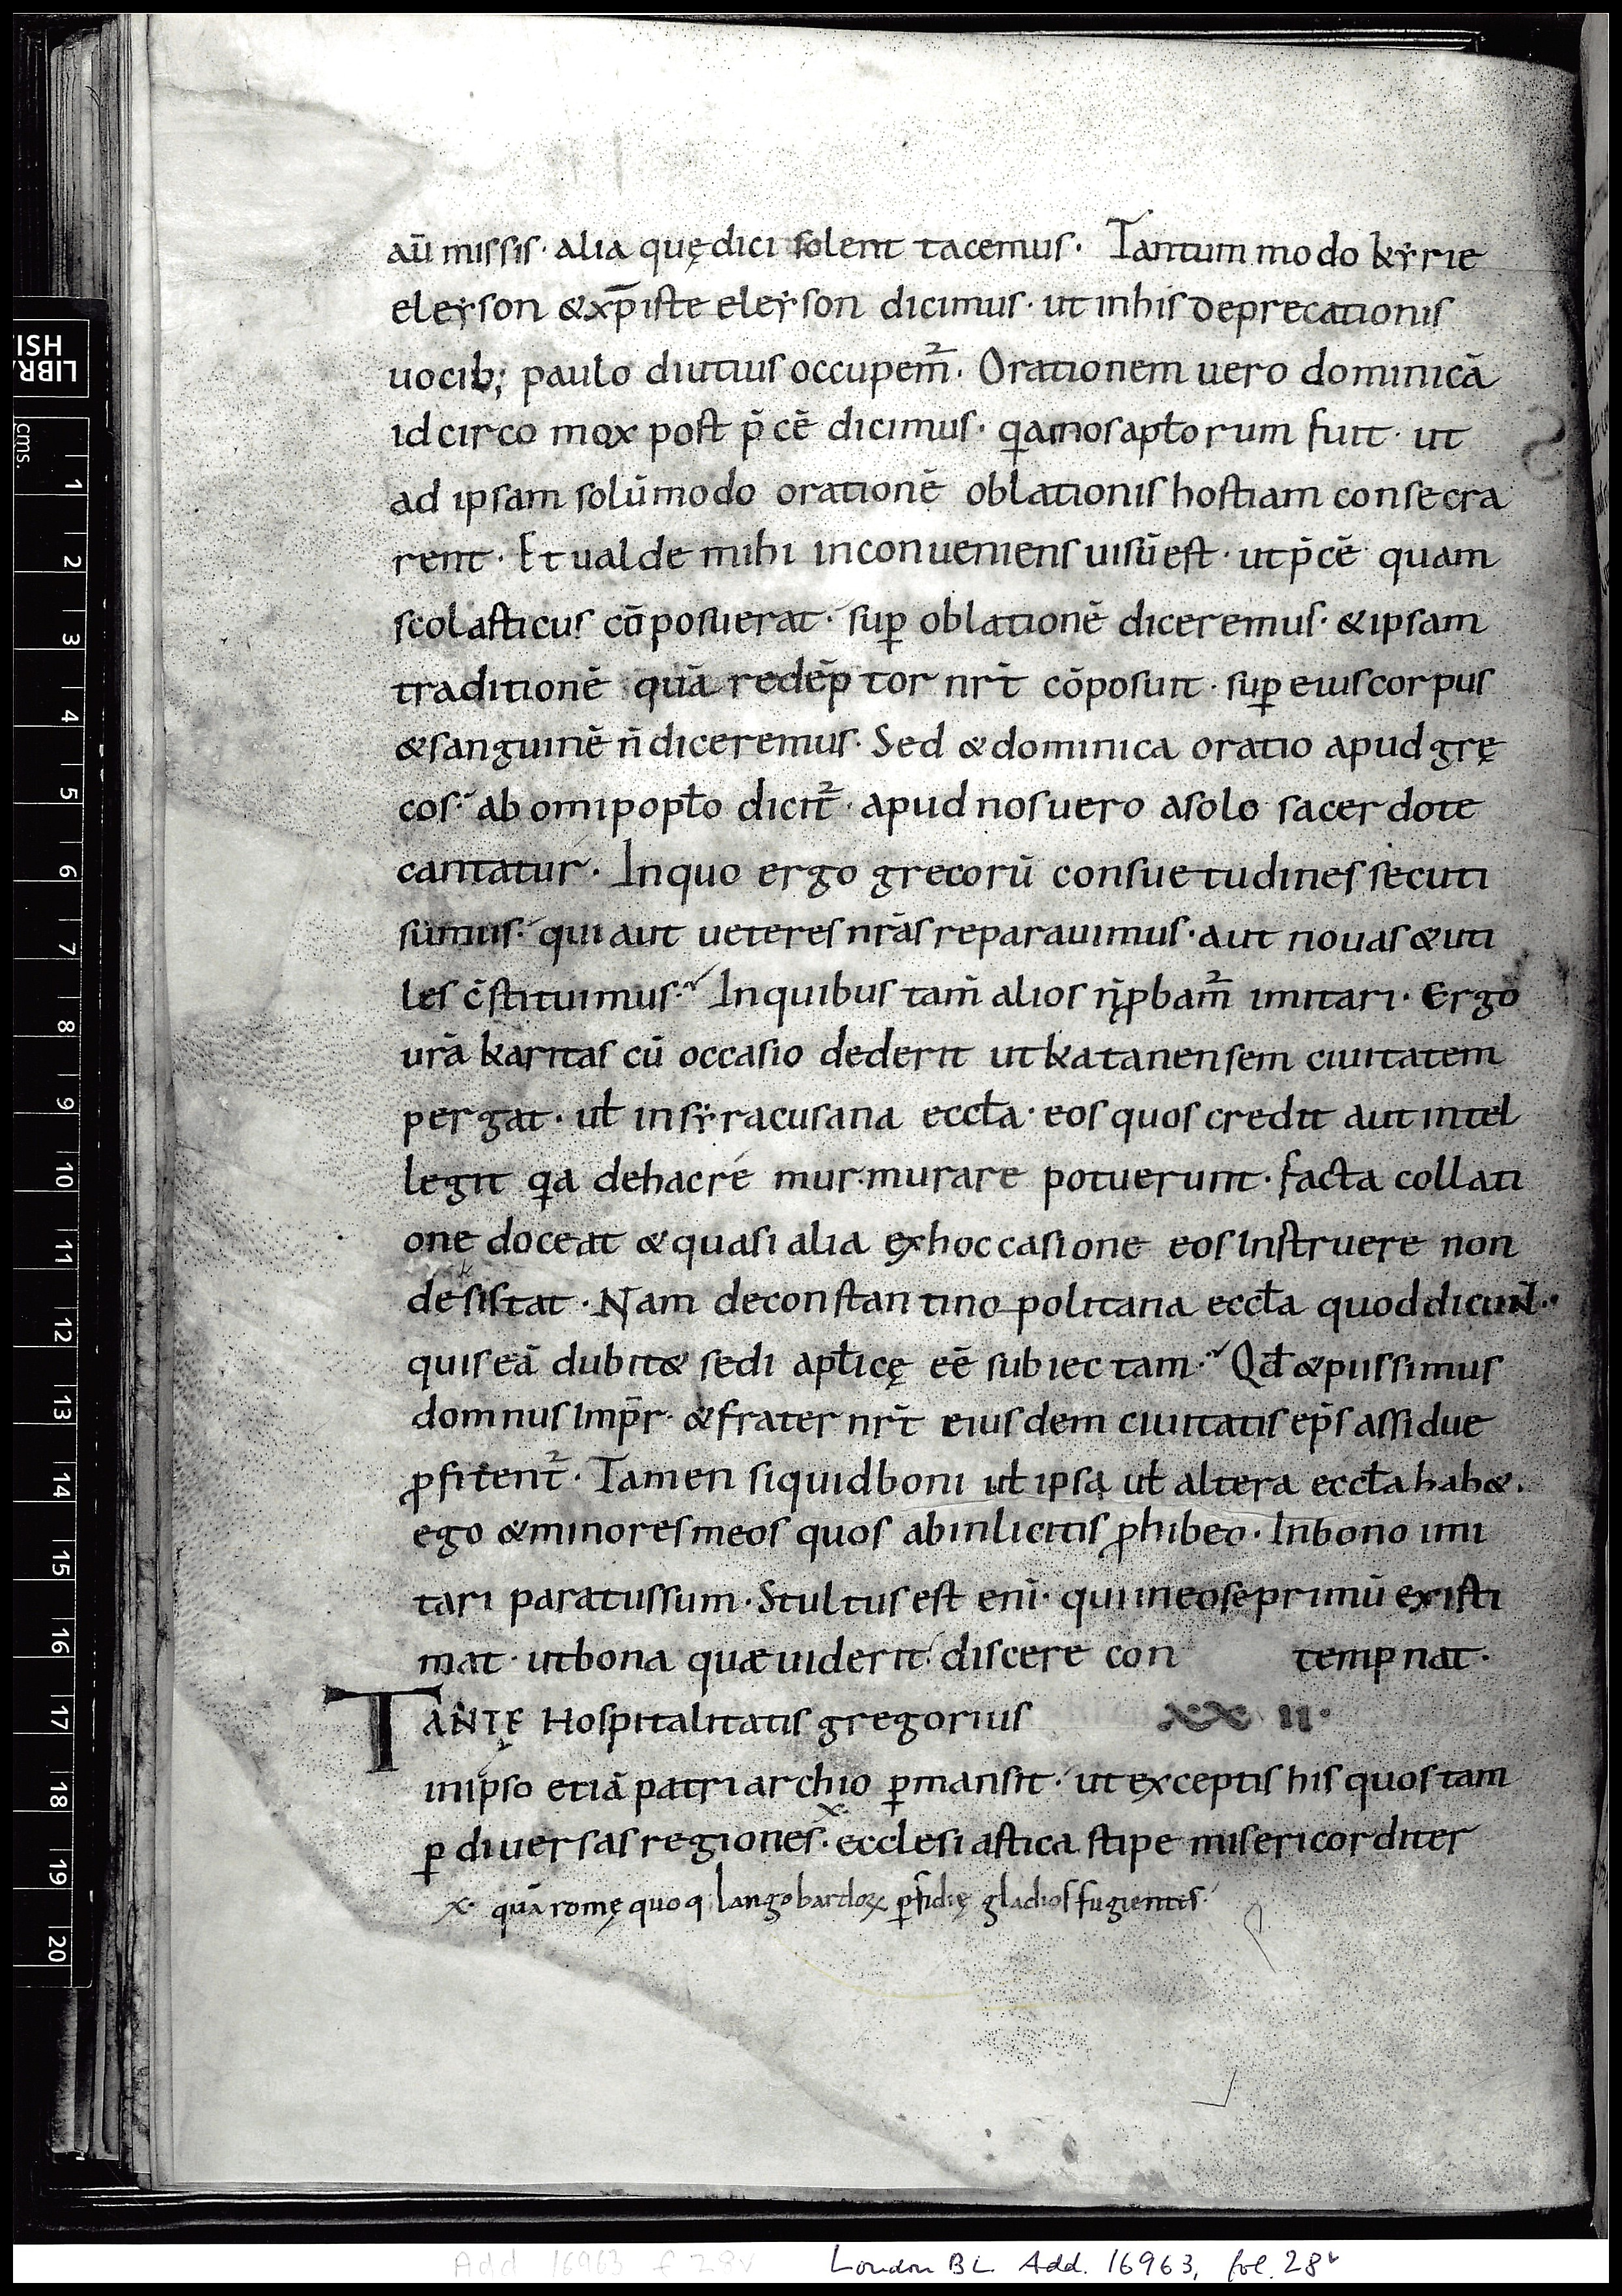 aū missis· alia quę dici solent tacemus· Tantum modo kẏrie
eleẏson & xp̄iste eleẏson dicimus· ut in his deprecationis
uocib; paulo diutius occupem̄²· Orationem uero dominicā
id circo mox post p̄cē dicimus· qa mos aptorum fuit· ut
ad ipsam solūmodo orationē oblationis hostiam consecra
rent· Et ualde mihi inconueniens uisū est· ut p̄cē quam
scolasticus cōposuerat· sup̱ oblationē diceremus· & ipsam
traditionē quā redēptor nr̄t cōposuit· sup̱ eius corpus
& sanguinē n̄ diceremus· Sed & dominica oratio apud grę
cos· ab omi popło dicit̄²· apud nos uero a solo sacerdote
cantatur· In quo ergo grecorū consuetudines secuti
sumus· qui aut ueteres nr̄as reparauimus· aut nouas & uti
les c̄stituimus· In quibus tam̄ alios n̄ ꝓbam̄² imitari· Ergo
ur̄a karitas cū occasio dederit ut katanensem ciuitatem
pergat· uł in sẏracusana eccła· eos quos credit aut intel
legit qa de hac re murmurare potuerunt· facta collati
one doceat & quasi alia ex hoccasione eos instruere non
desistat· Nam de constantinopolitana eccła quod dicunt·
quis eā dubit& sedi aplicę eē subiectam· Qđ & piissimus
domnus imp̄r· & frater nr̄t eiusdem ciuitatis ep̄s assidue
ꝓfitent̄²· Tamen si quid boni uł ipsa uł altera eccła hab&·
ego & minores meos quos ab inlicitis ꝓhibeo· In bono imi
tari paratus sum· Stultus est eni̅· qui in eo se primū existi
mat· ut bona quæ uiderit· discere con tempnat·
TANTĘ Hospitalitatis gregorius XX II·
in ipso etiā patriarchio ꝑmansit· ut exceptis his quos tam
ꝑ diuersas regiones· ecclesiastica stipe misericorditer
x· quā romę quoq langobardoꝝ ꝑfidię gladios fugientes·
LIBRA
HSI
cms.
1
2
3
4
5
6
7
8
9
10
11
12
13
14
15
16
17
18
19
20
Add 16963 f 28v
London BL Add. 16963, fol. 28v